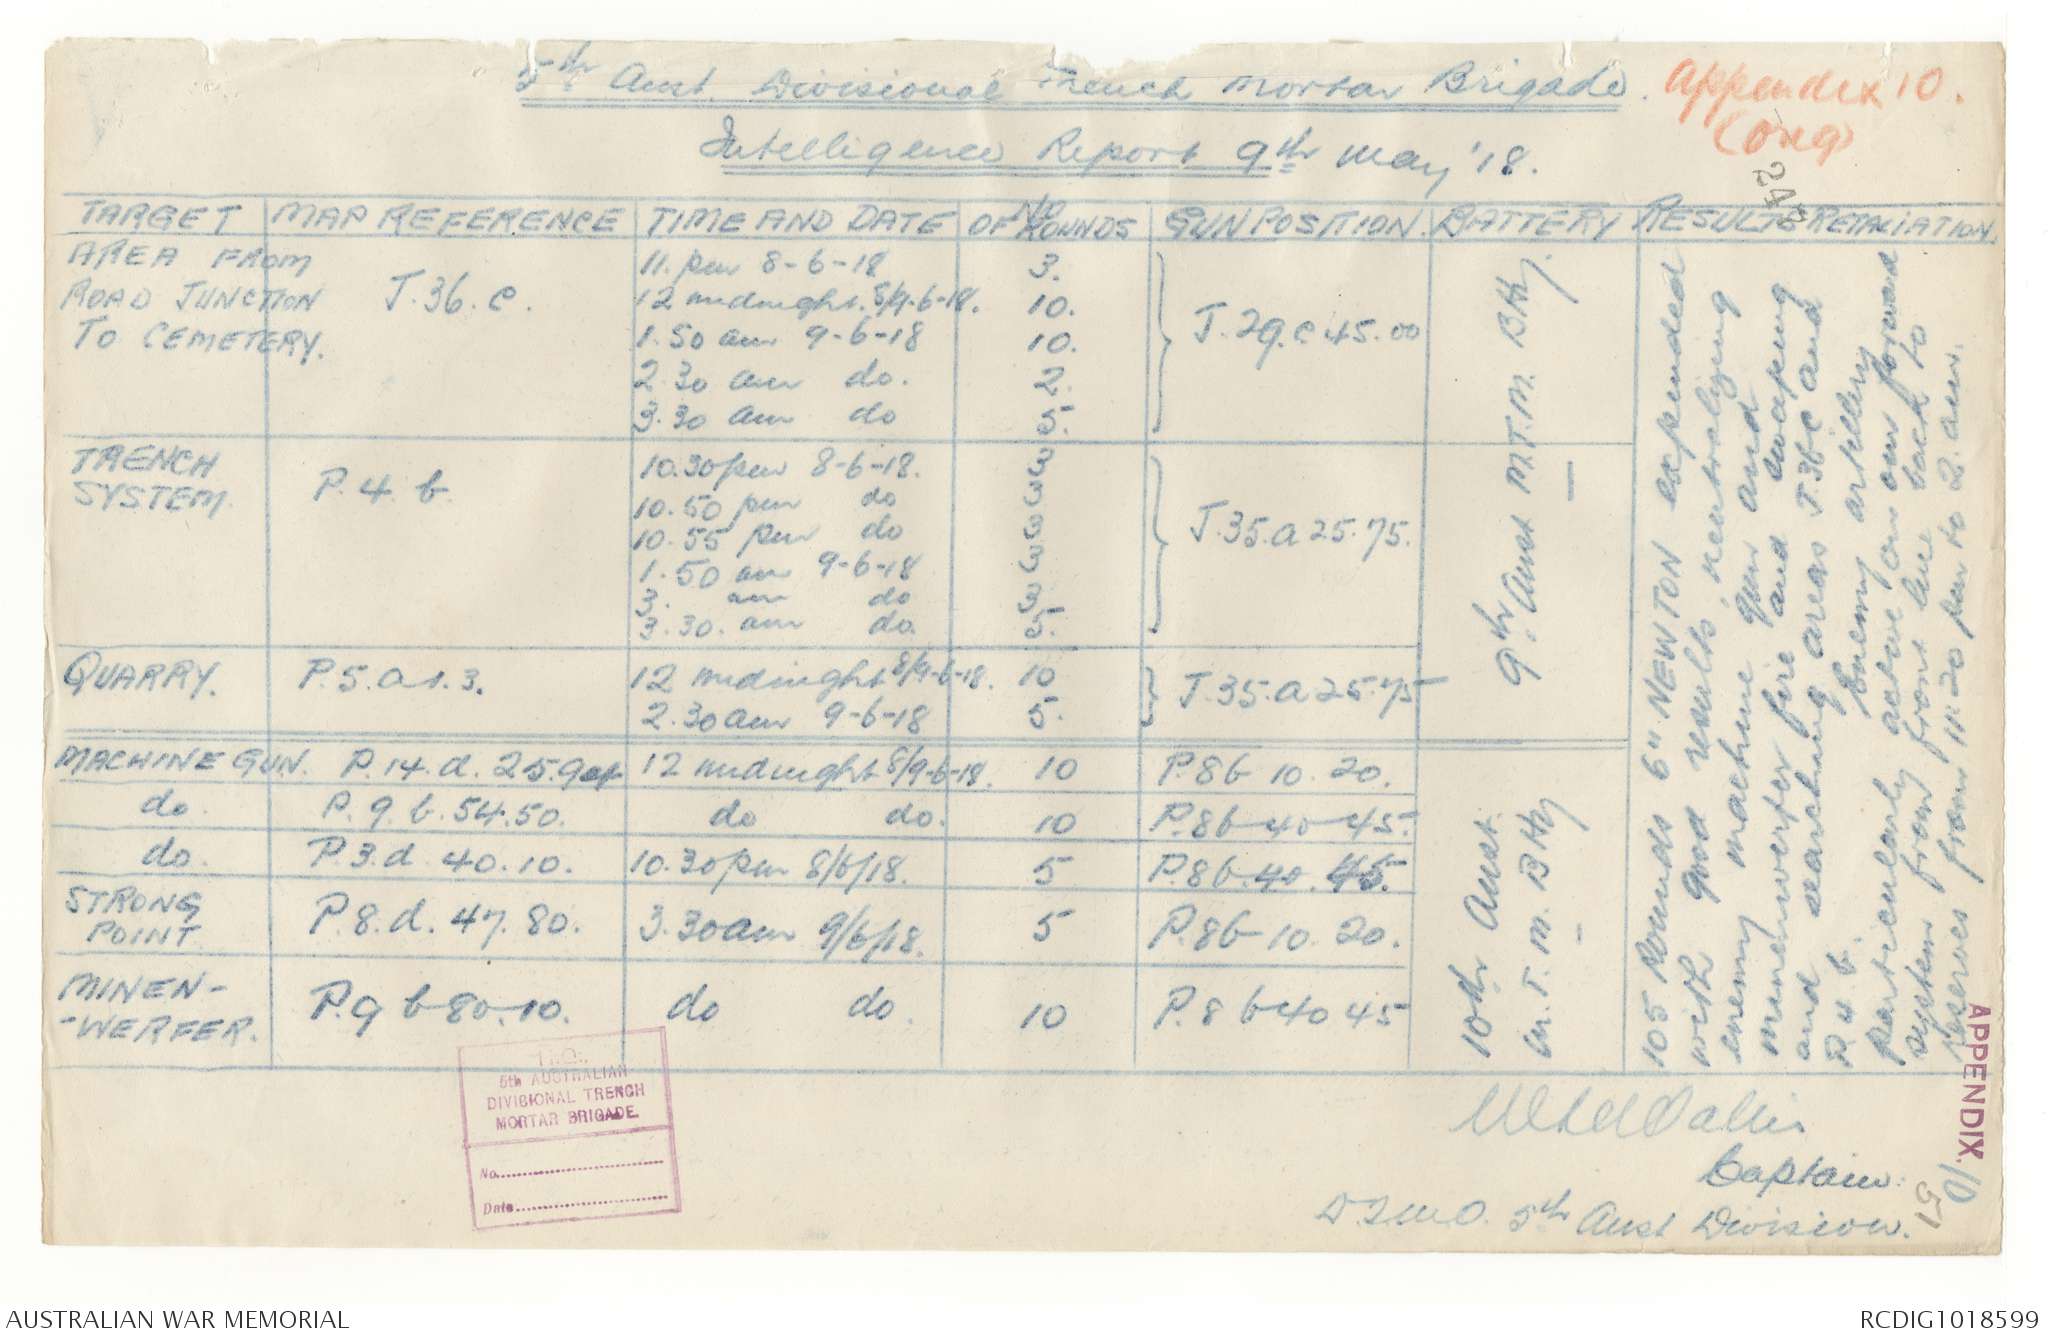 5th Aust. Divisional Trench Mortar Brigade. Appendix 10.
(Orig)
Intelligence Report 9th May '18.
TARGET MAP REFERENCE TIME AND DATE NO OF ROUNDS GUN POSITION BATTERY RESULTS RETALIATION.
AREA FROM
ROAD JUNCTION
TO CEMETERY.
J.36.c.
11.pm 8-6-18 3.
12 midnight. 8/9-6-18. 10.
1.50 am 9-6-18 10.
2.30 am do. 2.
3.30 am do 5.
J.29.c 45.00
TRENCH
SYSTEM.
P.4.b.
10.30pm 8-6-18. 3
10.50 pm do 3
10.55 pm do 3
1.50 am 9-6-18 3
3. am do 3
3.30. am do. 5.
J.35.a 25.75.
QUARRY. P.5.a.1.3.
12 midnight 8/9-6-18. 10
2.30am 9-6-18 5.
J.35.a 25.75
9th Aust M.T.M. Bty.
MACHINE GUN. P.14.d.25.90 12 midnight 8/9-6-18. 10 P.8b 10.20.
do. P.9.b.54.50. do do. 10 P.8b-40-45.
do. P.3.d.40.10. 10.30pm 8/6/18. 5 P.8b.40.45.
STRONG
POINT P.8.d.47.80. 3.30am 9/6/18. 5 P.8b-10.20.
MINEN-
-WERFER. P.9 b-80.10. do do. 10 P.8 b-40 45
10th Aust.
M.T.M. Bty
105 Rounds 6" NEWTON expended
with good results, neutralizing
enemy machine gun and
minenwerfer fire and sweeping
and searching areas J36c and
P.4.b. Enemy artillery
particularly active on our forward
system from front line back to
reserves from 11.20 pm to 2. am.
H.Q.
5th AUSTRALIAN
DIVISIONAL TRENCH
MORTAR BRIGADE.
No.
Date
Captain.
D.T.M.O. 5th Aust Division.
APPENDIX.
10
51
AUSTRALIAN WAR MEMORIAL RCDIG1018599